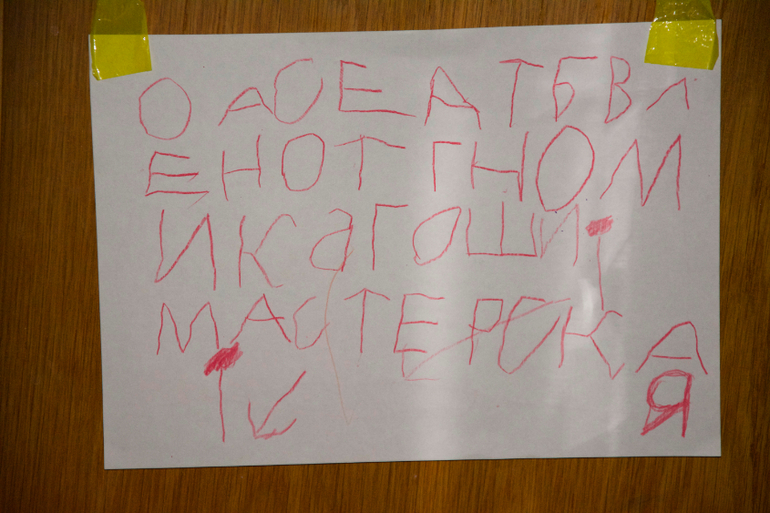 О АОЕ АТБВЛ
ЕНОТ ГНОМ
ИКаГОШИ
МАСТЕРСКА
Я